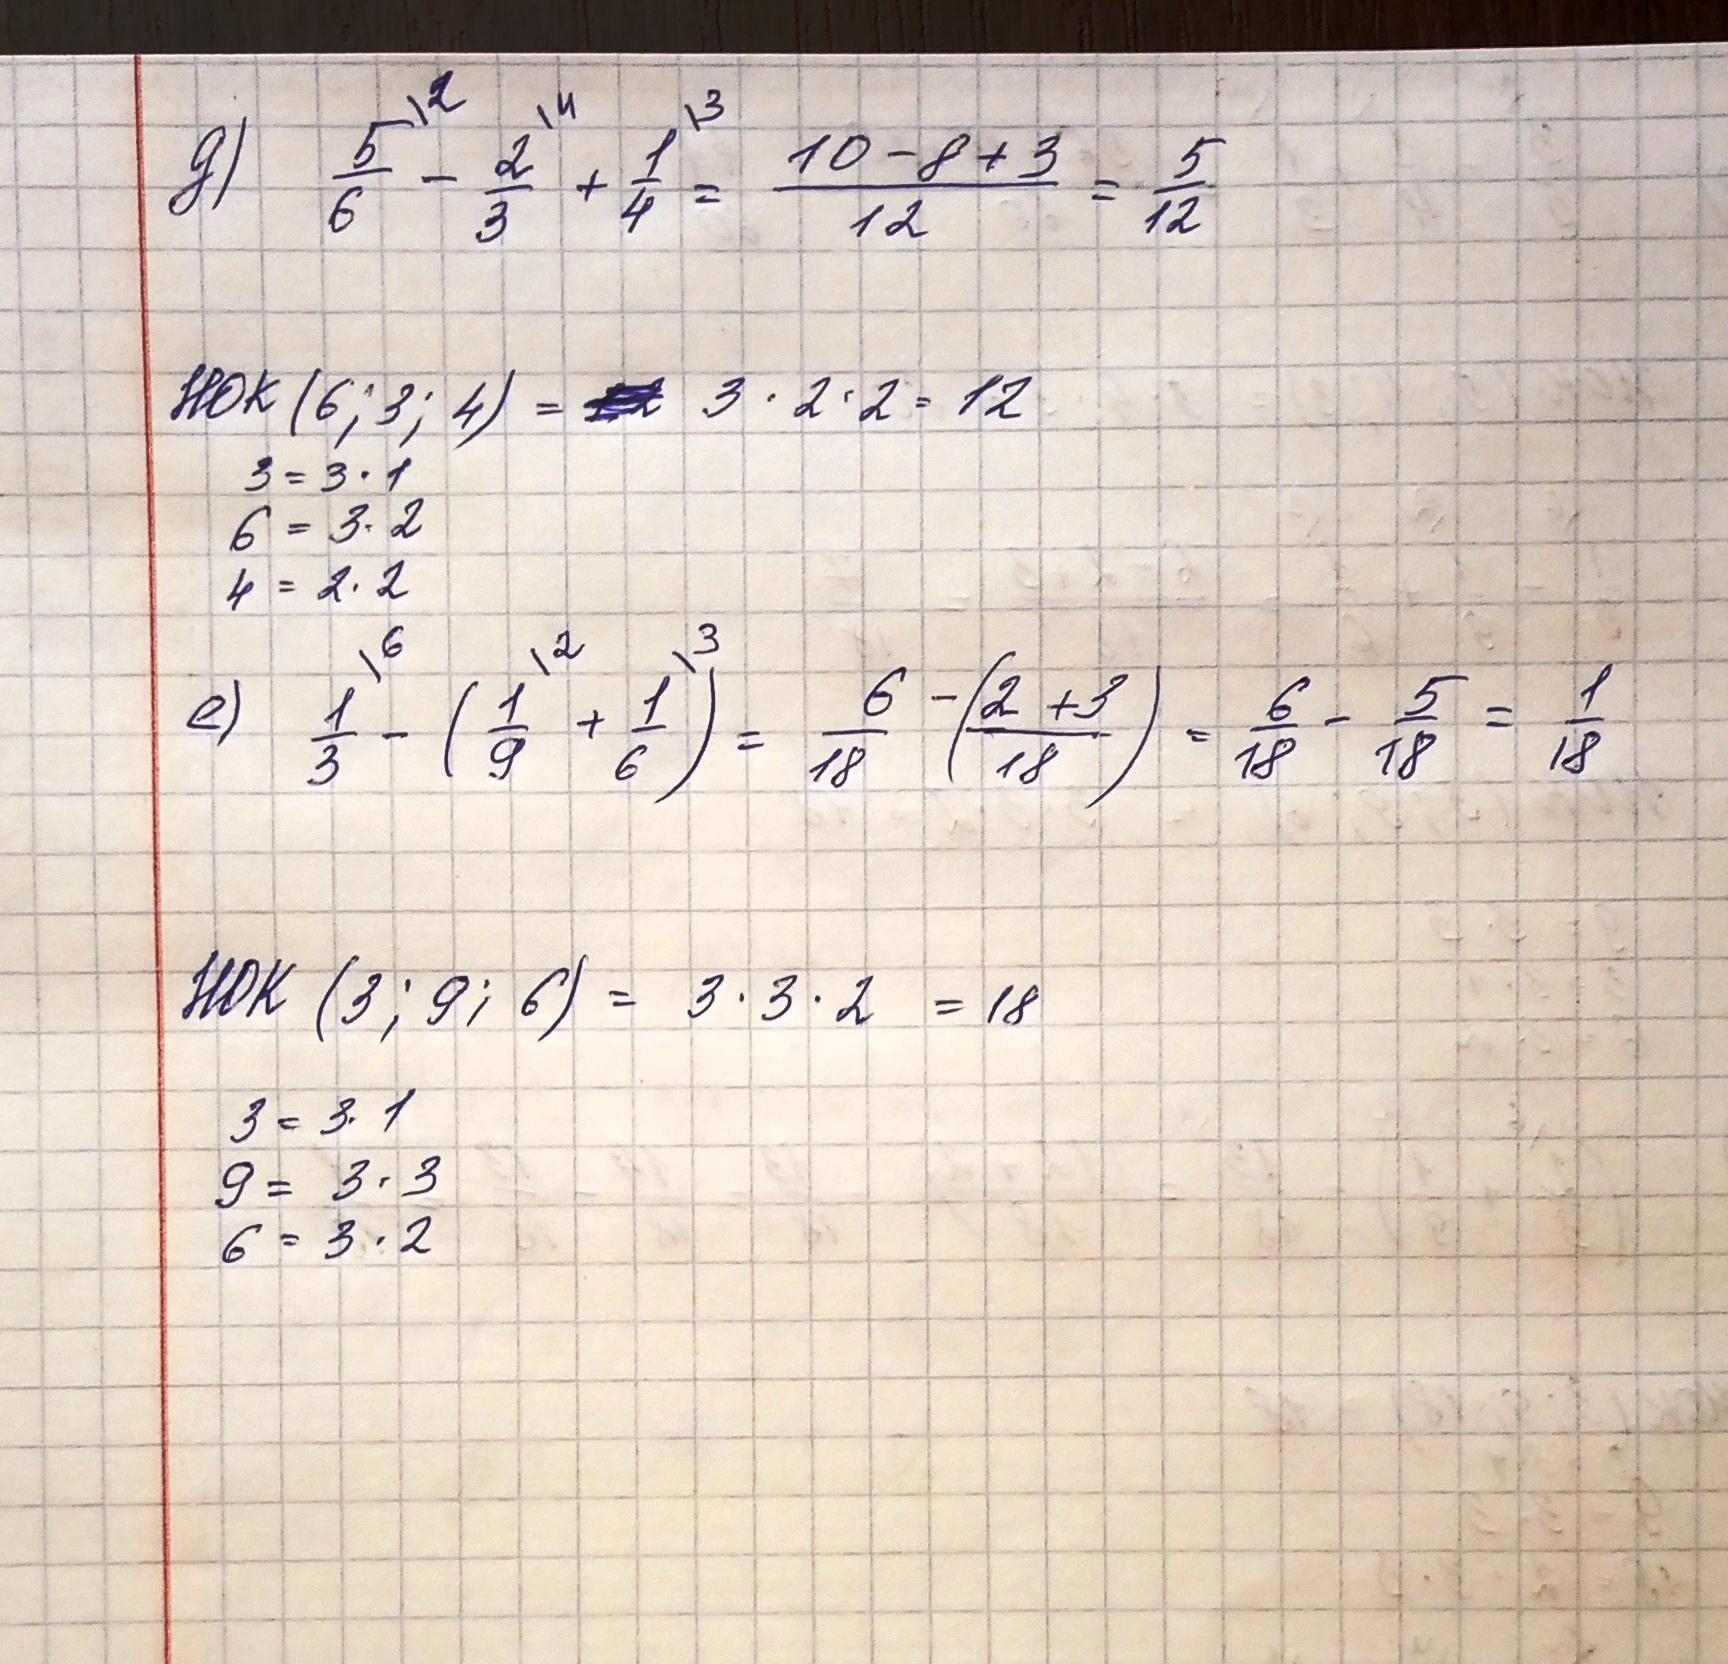 д) 5/6 \2 - 2/3 \4 + 1/4 \3 = 10-8+3/12 = 5/12
НОК (6; 3; 4) = 3 · 2 · 2 = 12
3 = 3 · 1
6 = 3 · 2
4 = 2 · 2
е) 1/3 \6 - (1/9 \2 + 1/6 \3) = 6/18 - (2+3/18) = 6/18 - 5/18 = 1/18
НОК (3; 9; 6) = 3 · 3 · 2 = 18
3 = 3 · 1
9 = 3 · 3
6 = 3 · 2